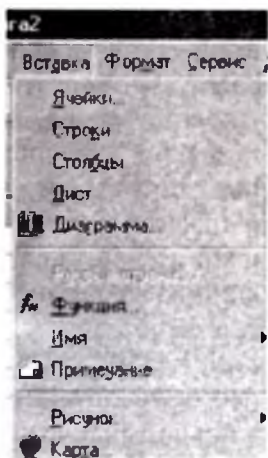 га2
Вставка Формат Сервис
Ячейки...
Строки
Столбцы
Лист
Диаграмма...
Функция...
Имя
Примечание
Рисунок
Карта